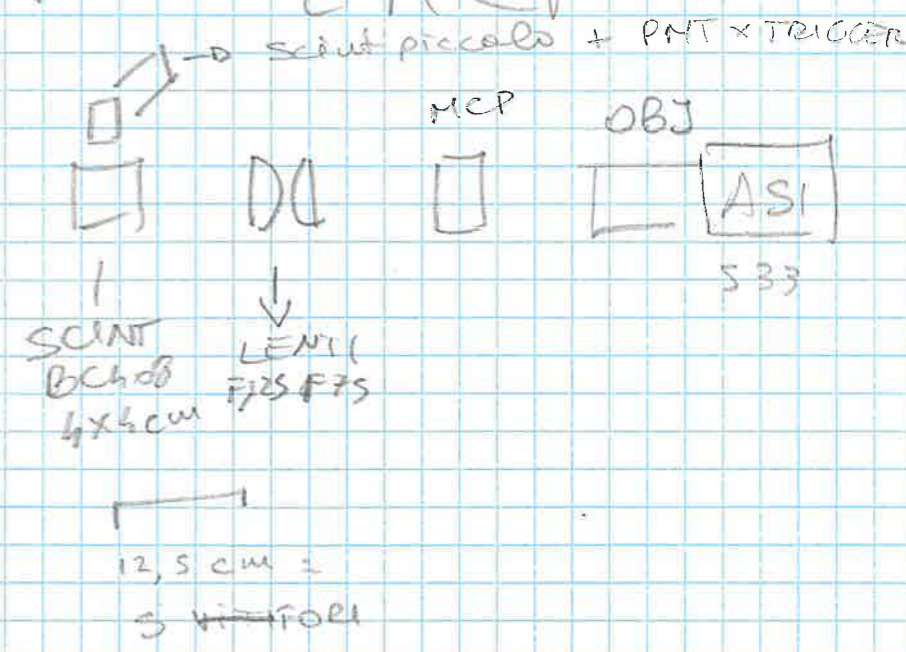 scint piccolo + PMT x TRIGGER
MCP
OBJ
ASI
533
SCINT
BC408
4x4cm
LENTI
F125 F75
12,5 cm =
5 FORI